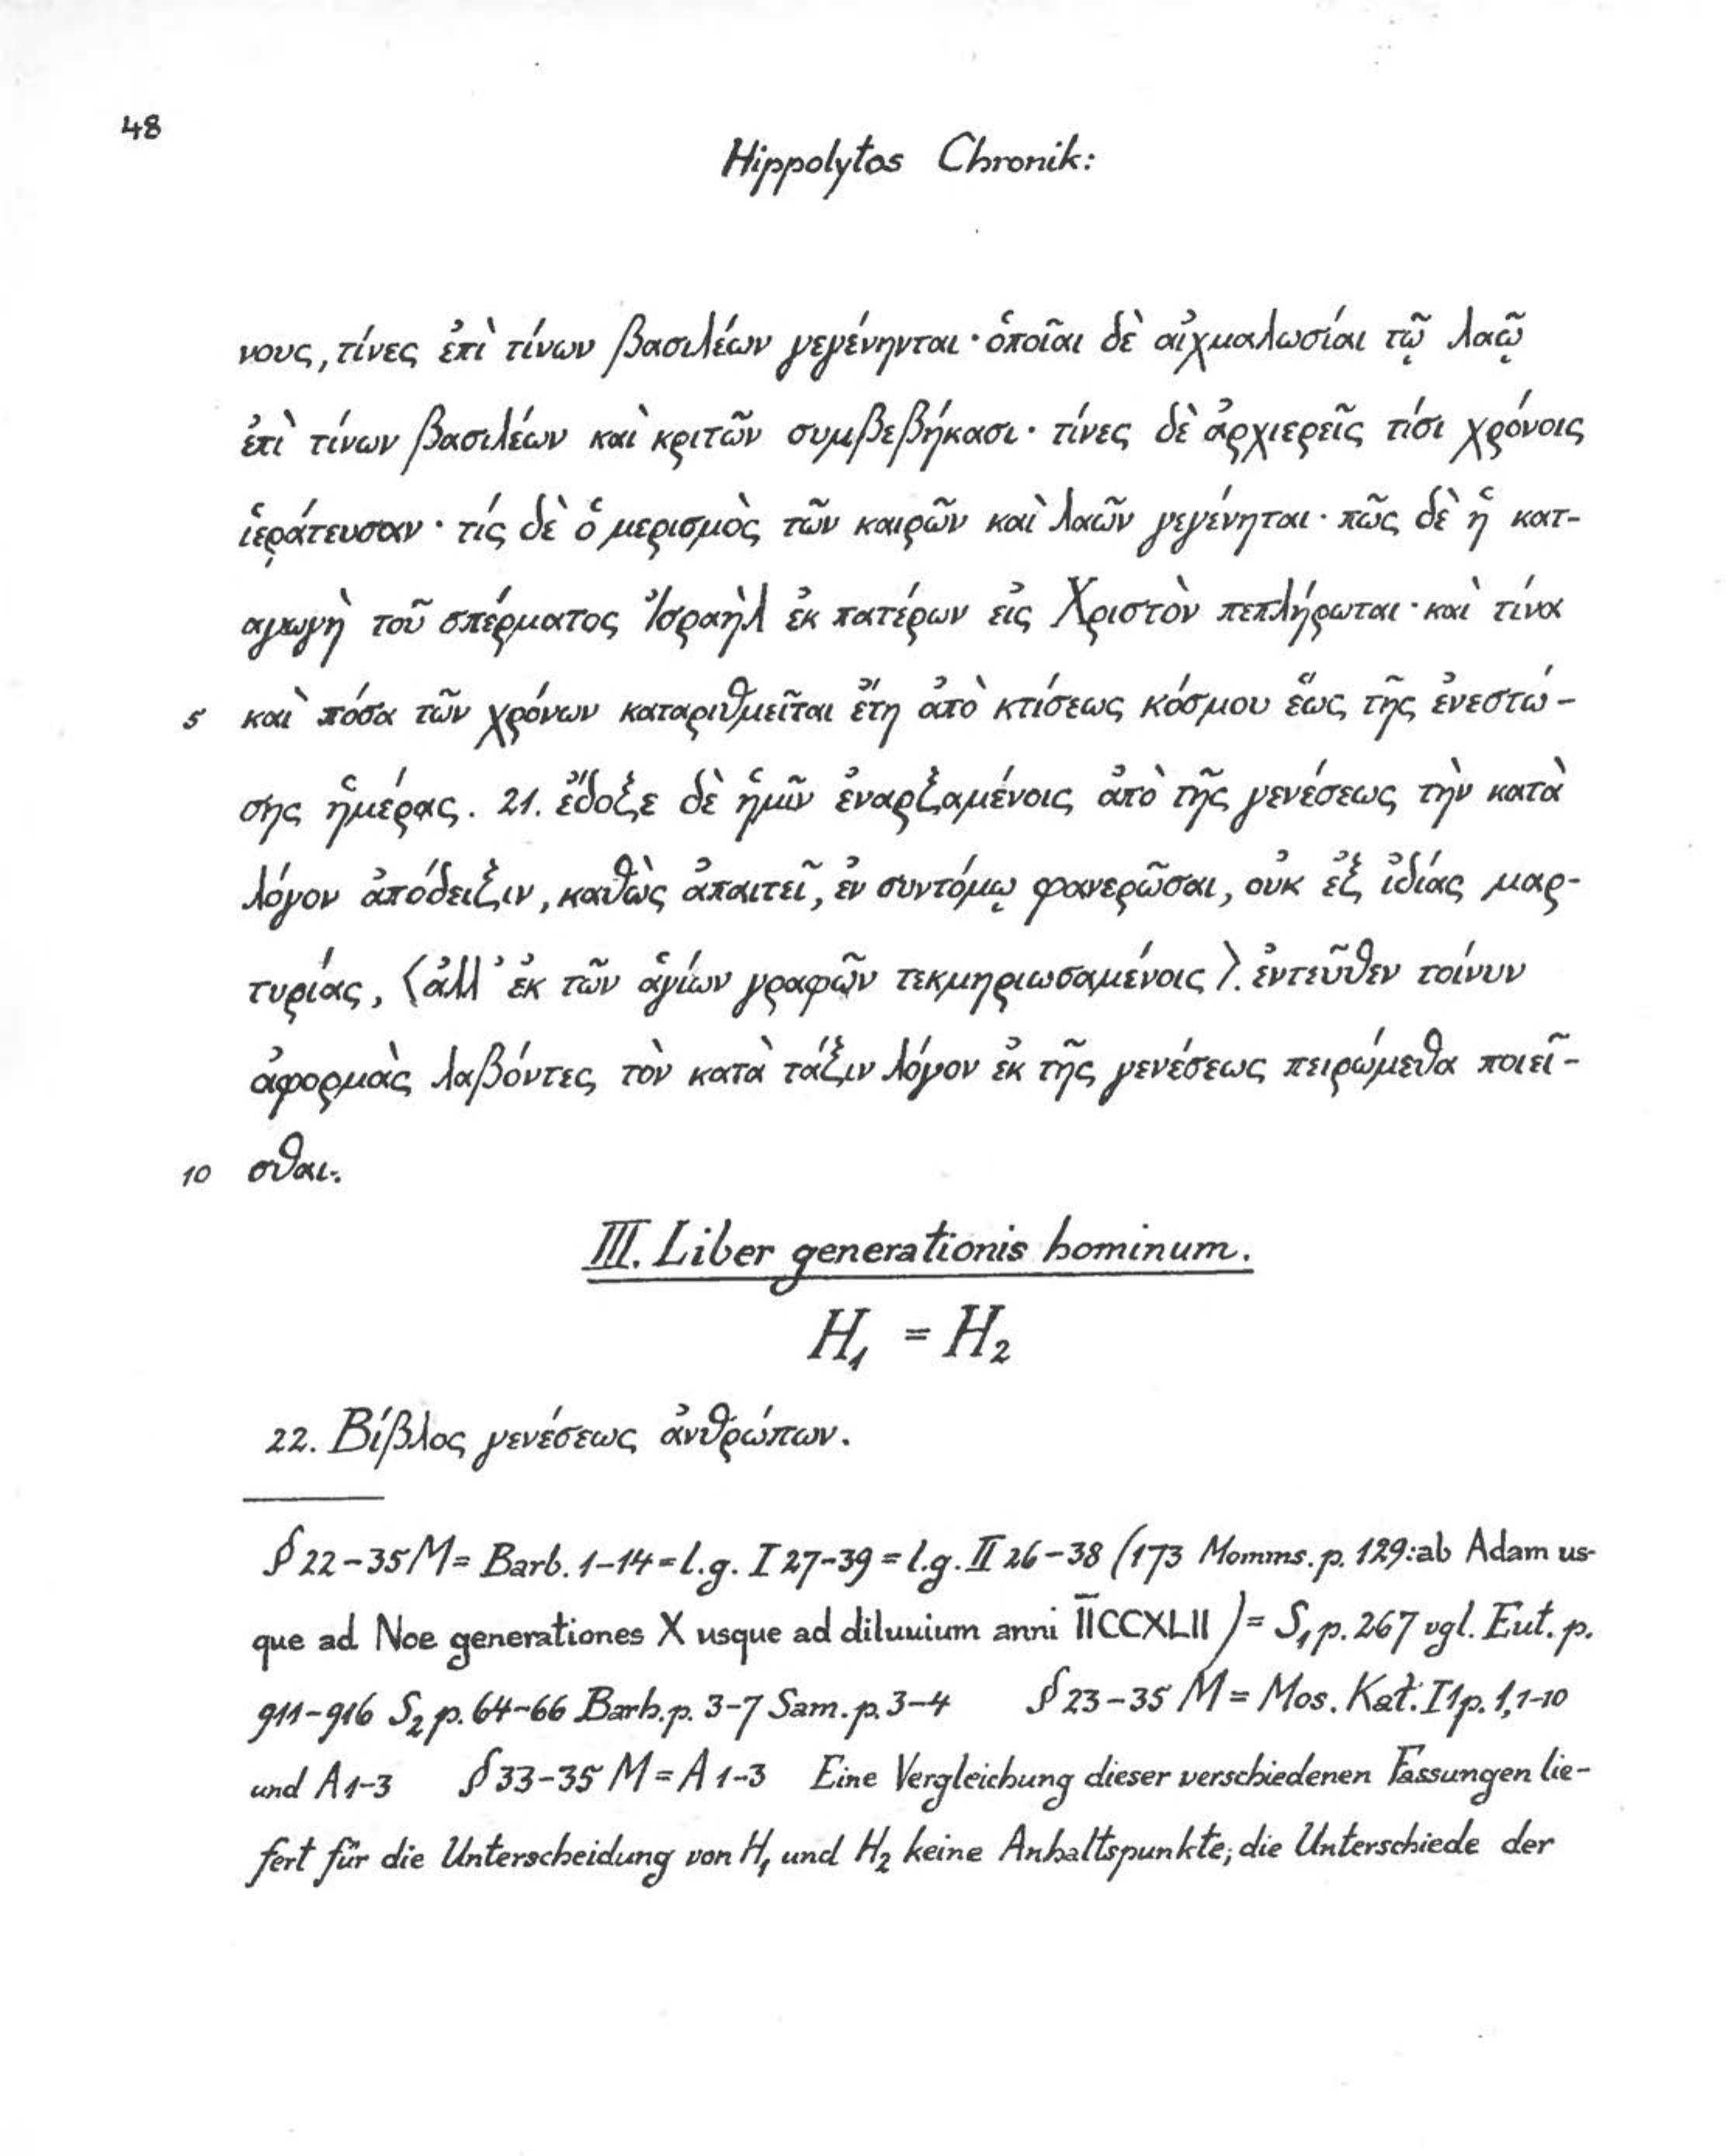 48
Hippolytos Chronik:
νους, τίνες ἐπὶ τίνων βασιλέων γεγένηνται · ὁποῖαι δὲ αἰχμαλωσίαι τῷ λαῷ
ἐπὶ τίνων βασιλέων καὶ κριτῶν συμβεβήκασι · τίνες δὲ ἀρχιερεῖς τίσι χρόνοις
ἱεράτευσαν · τίς δὲ ὁ μερισμὸς τῶν καιρῶν καὶ λαῶν γεγένηται · πῶς δὲ ἡ κατ-
αγωγὴ τοῦ σπέρματος Ἰσραὴλ ἐκ πατέρων εἰς Χριστὸν πεπλήρωται · καὶ τίνα
5 καὶ πόσα τῶν χρόνων καταριθμεῖται ἔτη ἀπὸ κτίσεως κόσμου ἕως τῆς ἐνεστώ-
σης ἡμέρας. 21. ἔδοξε δὲ ἡμῖν ἐναρξαμένοις ἀπὸ τῆς γενέσεως τὴν κατὰ
λόγον ἀπόδειξιν, καθὼς ἀπαιτεῖ, ἐν συντόμῳ φανερῶσαι, οὐκ ἐξ ἰδίας μαρ-
τυρίας, ⟨ἀλλ' ἐκ τῶν ἁγίων γραφῶν τεκμηριωσαμένοις⟩. ἐντεῦθεν τοίνυν
ἀφορμὰς λαβόντες τὸν κατὰ τάξιν λόγον ἐκ τῆς γενέσεως πειρώμεθα ποιεῖ-
10 σθαι·.
III. Liber generationis hominum.
H₁ = H₂
22. Βίβλος γενέσεως ἀνθρώπων.
§ 22-35 M = Barb. 1-14 = l.g. I 27-39 = l.g. II 26-38 (173 Momms. p. 129: ab Adam us-
que ad Noe generationes X usque ad diluuium anni I̅I̅CCXLII) = S₁ p. 267 vgl. Eut. p.
911-916 S₂ p. 64-66 Barh. p. 3-7 Sam. p. 3-4 § 23-35 M = Mos. Kat. I1 p. 1,1-10
und A 1-3 § 33-35 M = A 1-3 Eine Vergleichung dieser verschiedenen Fassungen lie-
fert für die Unterscheidung von H₁ und H₂ keine Anhaltspunkte; die Unterschiede der